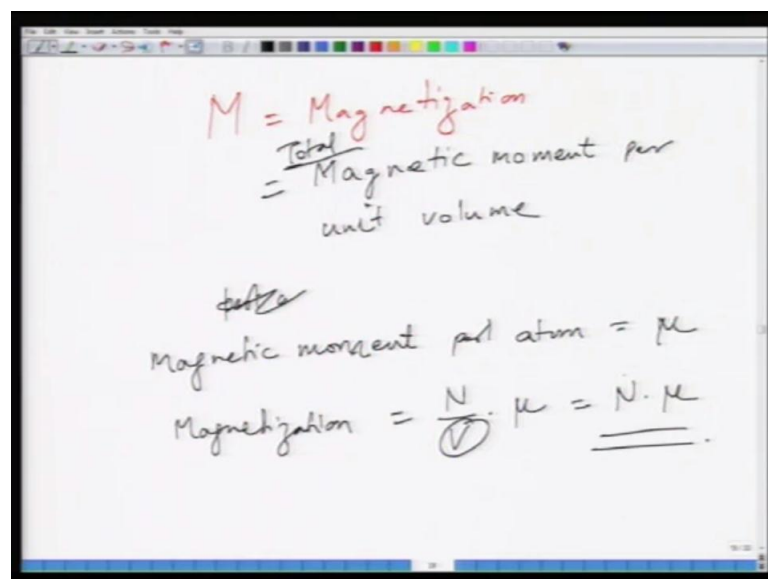 File Edit View Insert Actions Tools Help
M = Magnetization
Total
= Magnetic moment per
unit volume
Magnetic moment per atom = μ
Magnetization = N/V · μ = N · μ